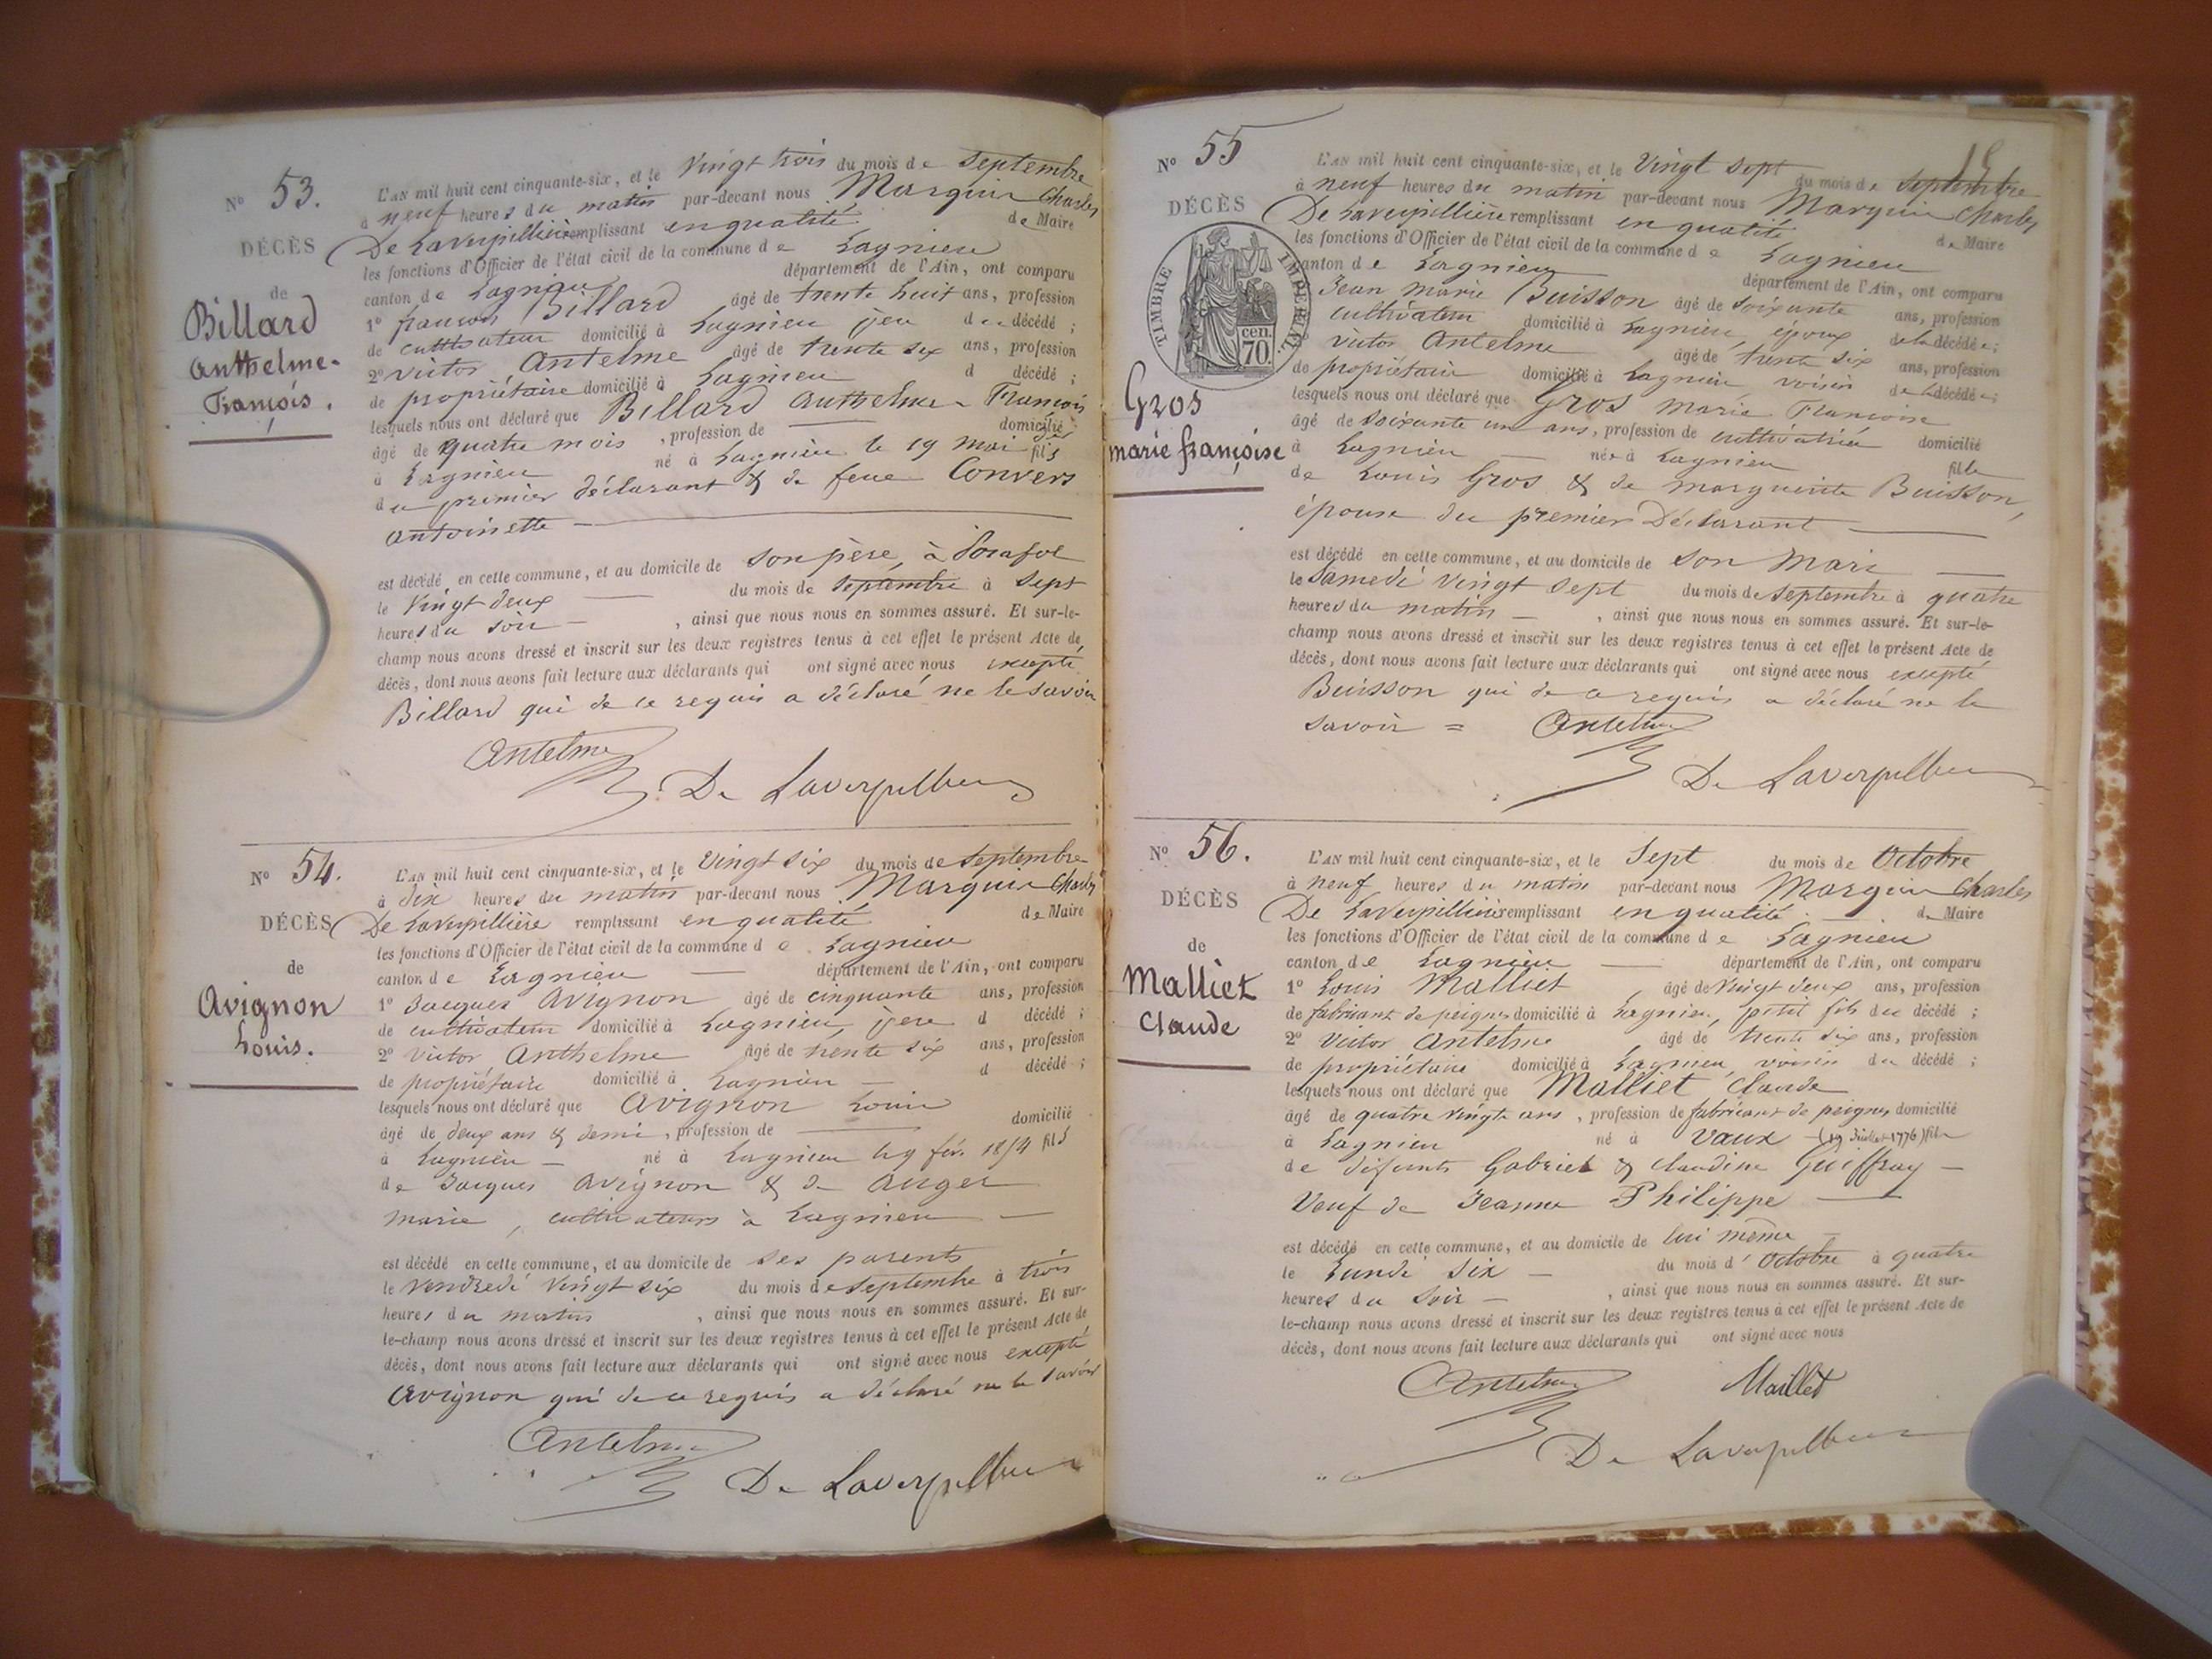 N° 53.
DÉCÈS
de
Billard
Anthelme-
François.
L'AN mil huit cent cinquante-six, et le Vingt trois du mois de Septembre
à neuf heures du matin par-devant nous Marquis Charles
De Laverpillière remplissant en qualité de Maire
les fonctions d'Officier de l'état civil de la commune de Lagnieu
canton de Lagnieu département de l'Ain, ont comparu
1° françois Billard âgé de trente huit ans, profession
de cultivateur domicilié à Lagnieu père d décédé ;
2° victor Antelme âgé de trente six ans, profession
de propriétaire domicilié à Lagnieu d décédé ;
lesquels nous ont déclaré que Billard Anthelme-François
âgé de quatre mois , profession de — domicilié
à Lagnieu né à Lagnieu le 19 mai fils
du premier déclarant & de feue Convers
Antoinette —
est décédé en cette commune, et au domicile de son père, à
le Vingt deux — du mois de Septembre à Sept
heures du soir — , ainsi que nous nous en sommes assuré. Et sur-le-
champ nous avons dressé et inscrit sur les deux registres tenus à cet effet le présent Acte de
décès, dont nous avons fait lecture aux déclarants qui ont signé avec nous excepté
Billard qui de ce requis a déclaré ne le savoir
Antelme
De Laverpillière
N° 54.
DÉCÈS
de
Avignon
Louis.
L'AN mil huit cent cinquante-six, et le Vingt six du mois de Septembre
à dix heures du matin par-devant nous Marquis Charles
De Laverpillière remplissant en qualité de Maire
les fonctions d'Officier de l'état civil de la commune de Lagnieu
canton de Lagnieu — département de l'Ain, ont comparu
1° Jacques Avignon âgé de cinquante ans, profession
de cultivateur domicilié à Lagnieu, père d décédé ;
2° Victor Anthelme âgé de trente six ans, profession
de propriétaire domicilié à Lagnieu — d décédé ;
lesquels nous ont déclaré que Avignon Louis
âgé de deux ans & demi, profession de — domicilié
à Lagnieu — né à Lagnieu le 9 fév. 1854 fils
de Jacques Avignon & de Auger
Marie, cultivateurs à Lagnieu —
est décédé en cette commune, et au domicile de ses parents
le Vendredi Vingt six du mois de Septembre à trois
heures du matin , ainsi que nous nous en sommes assuré. Et sur-
le-champ nous avons dressé et inscrit sur les deux registres tenus à cet effet le présent Acte de
décès, dont nous avons fait lecture aux déclarants qui ont signé avec nous excepté
Avignon qui de ce requis a déclaré ne le savoir
Antelme
De Laverpillière
N° 55
DÉCÈS
TIMBRE IMPÉRIAL
70 cen.
Gros
marie françoise
L'AN mil huit cent cinquante-six, et le Vingt Sept du mois de Septembre
à neuf heures du matin par-devant nous Marquis Charles
De Laverpillière remplissant en qualité de Maire
les fonctions d'Officier de l'état civil de la commune de Lagnieu
canton de Lagnieu département de l'Ain, ont comparu
Jean Marie Buisson âgé de soixante ans, profession
cultivateur domicilié à Lagnieu, époux de la décédée ;
victor Antelme âgé de trente six ans, profession
de propriétaire domicilié à Lagnieu voisin de la décédée ;
lesquels nous ont déclaré que Gros Marie Françoise
âgé de soixante un ans, profession de cultivatrice domicilié
à Lagnieu — née à Lagnieu fille
de Louis Gros & de Marguerite Buisson,
épouse du premier Déclarant —
est décédé en cette commune, et au domicile de son Mari —
le Samedi vingt sept du mois de Septembre à quatre
heures du matin — , ainsi que nous nous en sommes assuré. Et sur-le-
champ nous avons dressé et inscrit sur les deux registres tenus à cet effet le présent Acte de
décès, dont nous avons fait lecture aux déclarants qui ont signé avec nous excepté
Buisson qui de ce requis a déclaré ne le
savoir = Antelme
De Laverpillière
N° 56.
DÉCÈS
de
Malliet
Claude
L'AN mil huit cent cinquante-six, et le Sept du mois de Octobre
à neuf heures du matin par-devant nous Marquis Charles
De Laverpillière remplissant en qualité — de Maire
les fonctions d'Officier de l'état civil de la commune de Lagnieu
canton de Lagnieu — département de l'Ain, ont comparu
1° Louis Malliet âgé de Vingt deux ans, profession
de fabricant de peignes domicilié à Lagnieu, petit fils du décédé ;
2° Victor Antelme âgé de trente six ans, profession
de propriétaire domicilié à Lagnieu, voisin du décédé ;
lesquels nous ont déclaré que Malliet Claude
âgé de quatre vingts ans, profession de fabricant de peignes domicilié
à Lagnieu né à Vaux (19 Juillet 1776) fils
de défunts Gabriel & Claudine Guiffray —
Veuf de Jeanne Philippe —
est décédé en cette commune, et au domicile de lui même
le Lundi Six — du mois d'Octobre à quatre
heures du Soir — , ainsi que nous nous en sommes assuré. Et sur-
le-champ nous avons dressé et inscrit sur les deux registres tenus à cet effet le présent Acte de
décès, dont nous avons fait lecture aux déclarants qui ont signé avec nous
Antelme Maillet
De Laverpillière